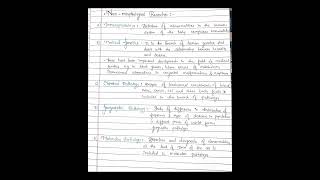 Non-morphological Branches :-
a) Immunopathology : Detection of abnormalities in the immune
system of the body comprises immunopathology
b) Medical Genetics : It is the branch of human genetics that
deal with the relationship between heredity
and disease.
There have been important developments in the field of medical
genetics e.g. in blood groups, inborn errors of metabolism,
chromosomal aberrations in congenital malformations &
c) Chemical Pathology : Analysis of biochemical constituents of blood,
urine, semen, CSF and other body fluids is
included in this branch of pathology.
d) Geographic Pathology : Study of difference in distribution of
frequency & type of diseases in population
in different parts of world forms
geographic pathology.
e) Molecular Pathology : Detection and diagnosis of abnormalities
at the level of DNA of the cell is
included in molecular pathology.